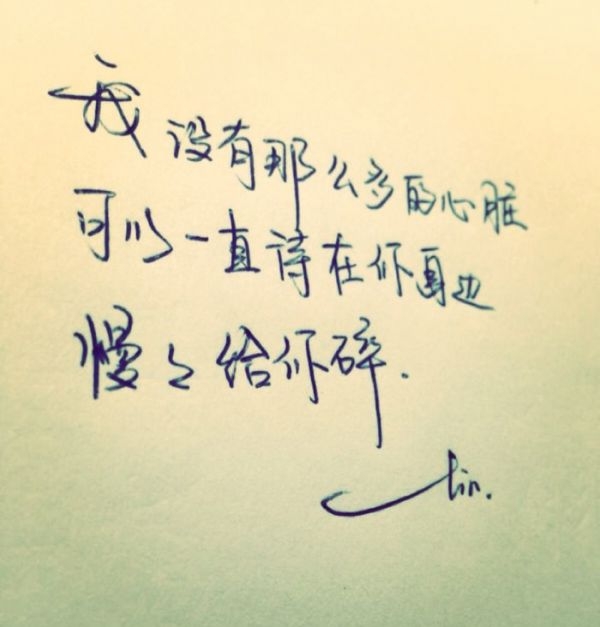 我没有那么多的心脏
可以一直待在你身边
慢々给你碎.
tin.